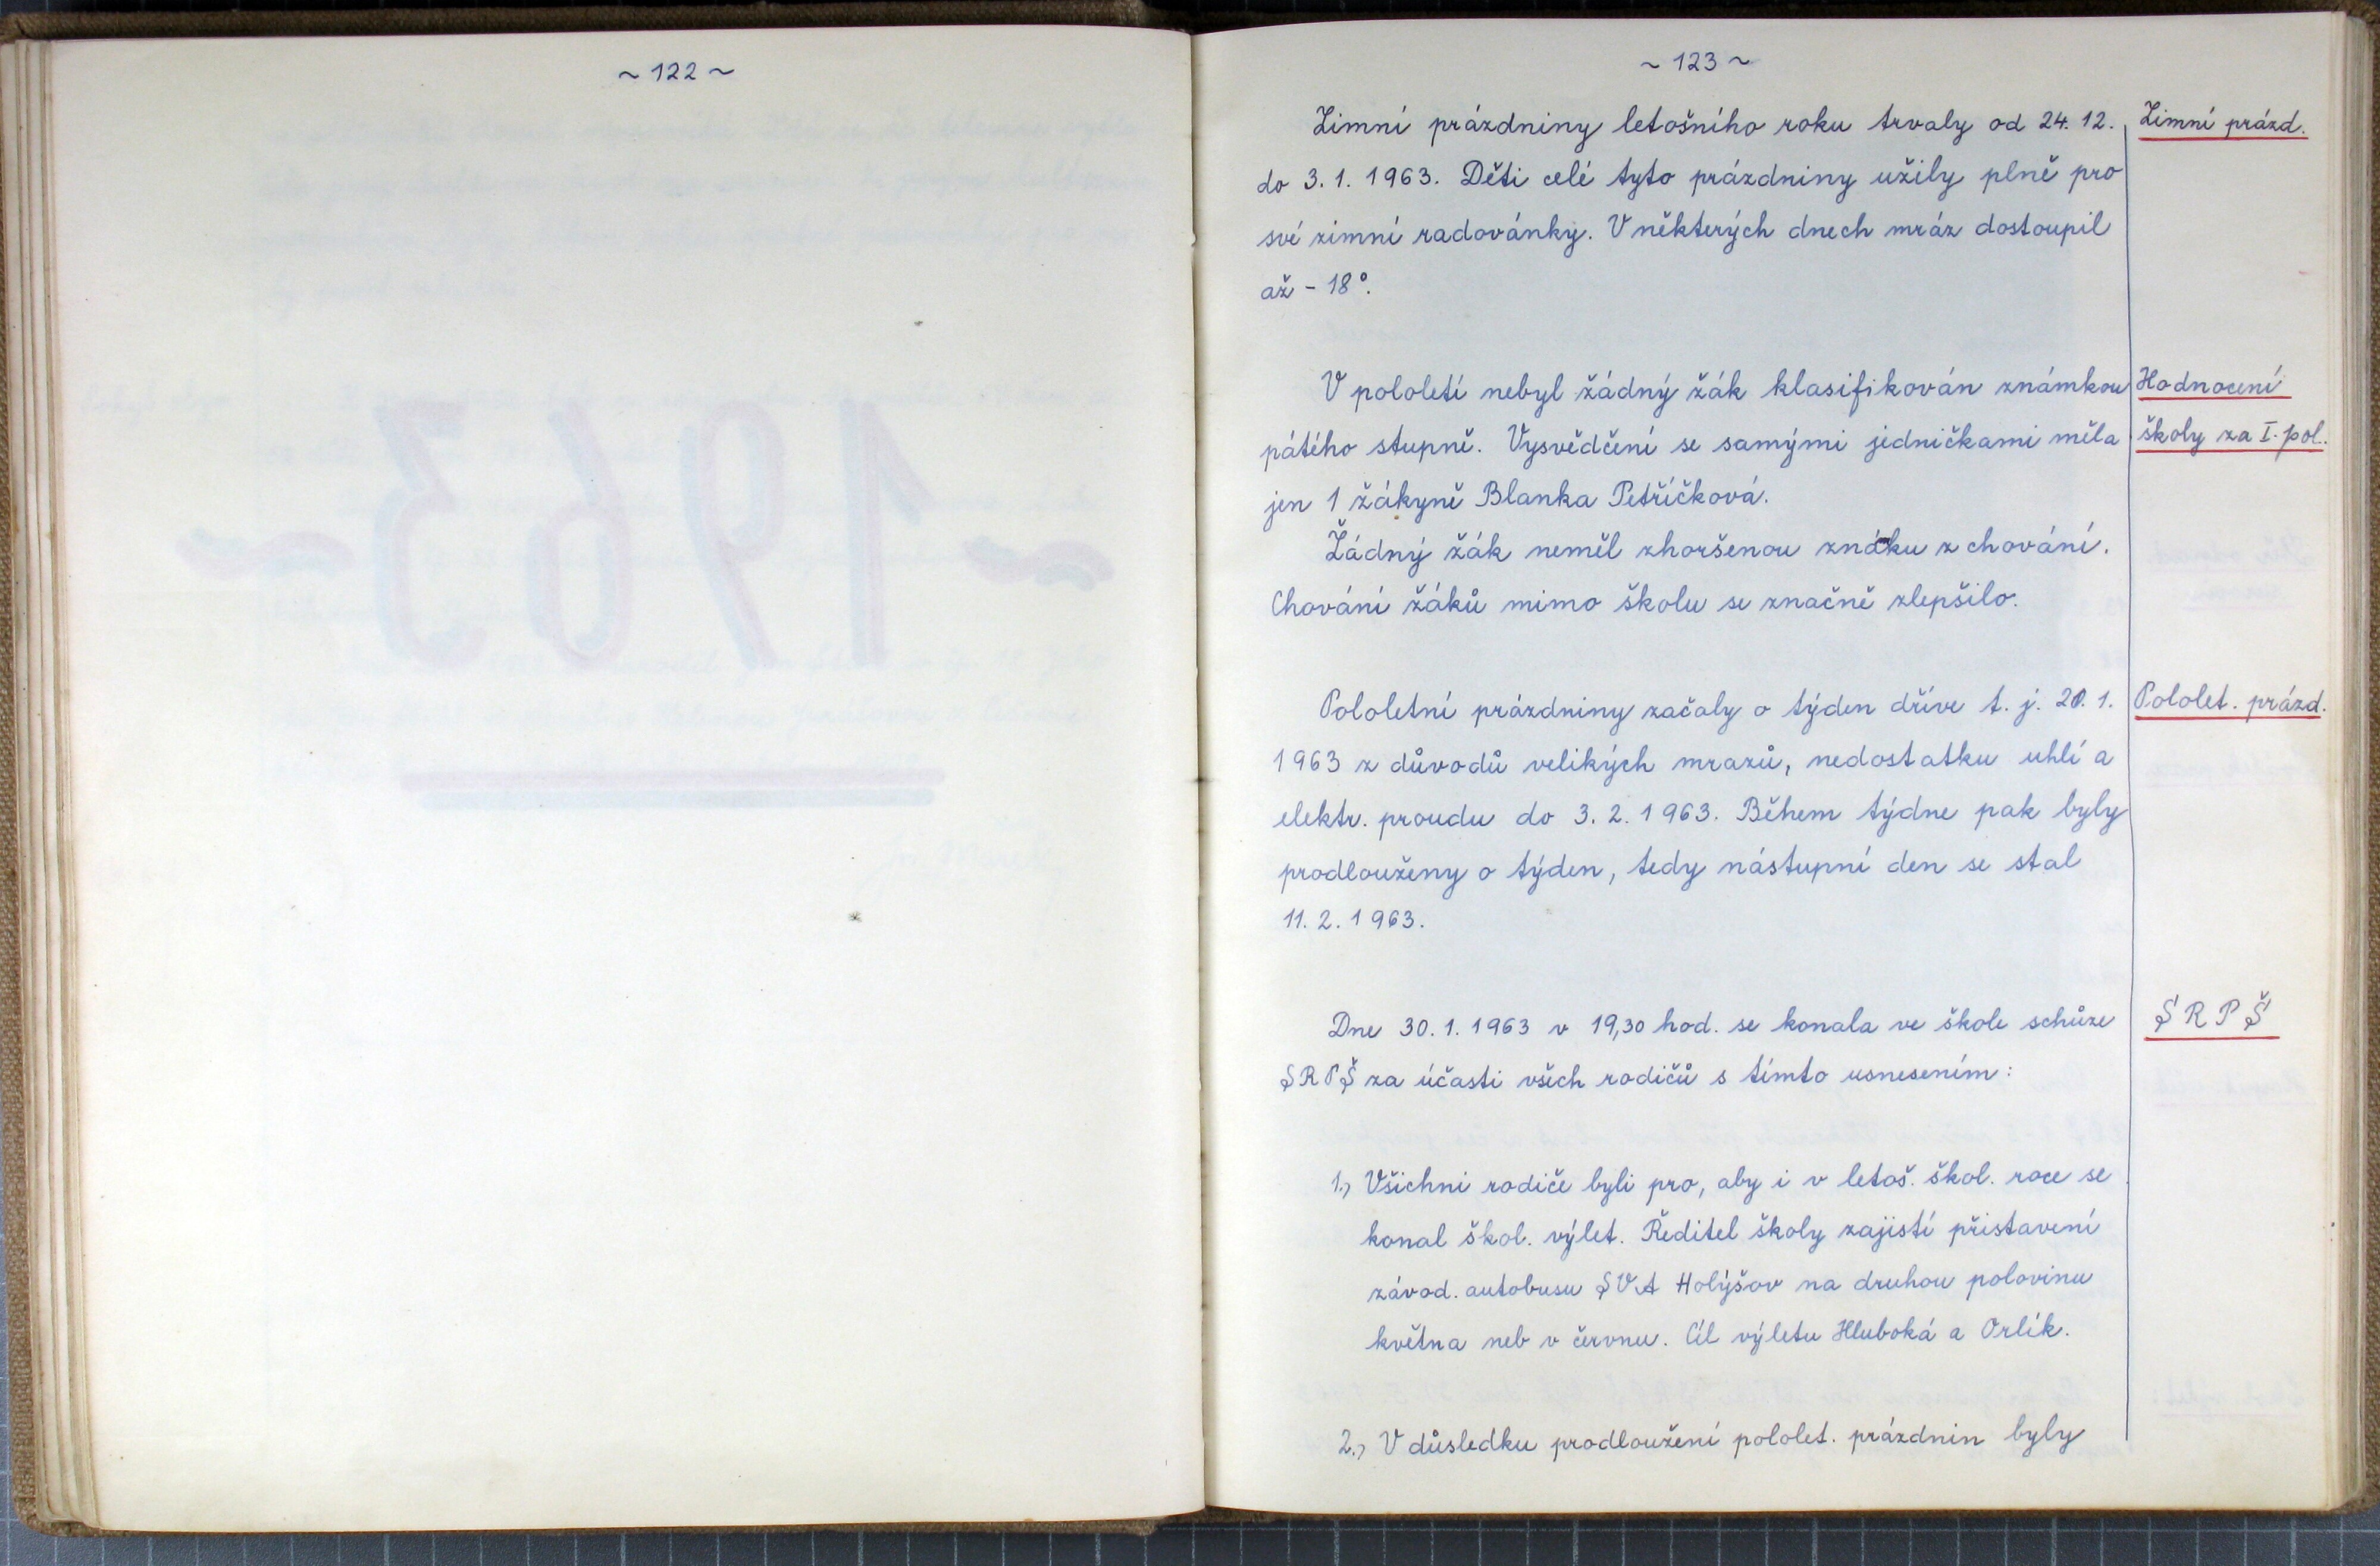 ~ 122 ~
~ 123 ~
Zimní prázdniny letošního roku trvaly od 24. 12.
Zimní prázd.
do 3. 1. 1963. Děti celé tyto prázdniny užily plně pro
své zimní radovánky. V některých dnech mráz dostoupil
až - 18°.
V pololetí nebyl žádný žák klasifikován známkou
Hodnocení
pátého stupně. Vysvědčení se samými jedničkami měla
školy za I. pol.
jen 1 žákyně Blanka Petříčková.
Žádný žák neměl zhoršenou známku z chování.
Chování žáků mimo školu se značně zlepšilo.
Pololetní prázdniny začaly o týden dříve t. j. 20. 1.
Pololet. prázd.
1963 z důvodů velikých mrazů, nedostatku uhlí a
elektr. proudu do 3. 2. 1963. Během týdne pak byly
prodlouženy o týden, tedy nástupní den se stal
11. 2. 1963.
Dne 30. 1. 1963 v 19,30 hod. se konala ve škole schůze
SRPŠ
SRPŠ za účasti všech rodičů s tímto usnesením:
1., Všichni rodiče byli pro, aby i v letoš. škol. roce se
konal škol. výlet. Ředitel školy zajistí přistavení
závod. autobusu SVA Holýšov na druhou polovinu
května neb v červnu. Cíl výletu Hluboká a Orlík.
2., V důsledku prodloužení pololet. prázdnin byly